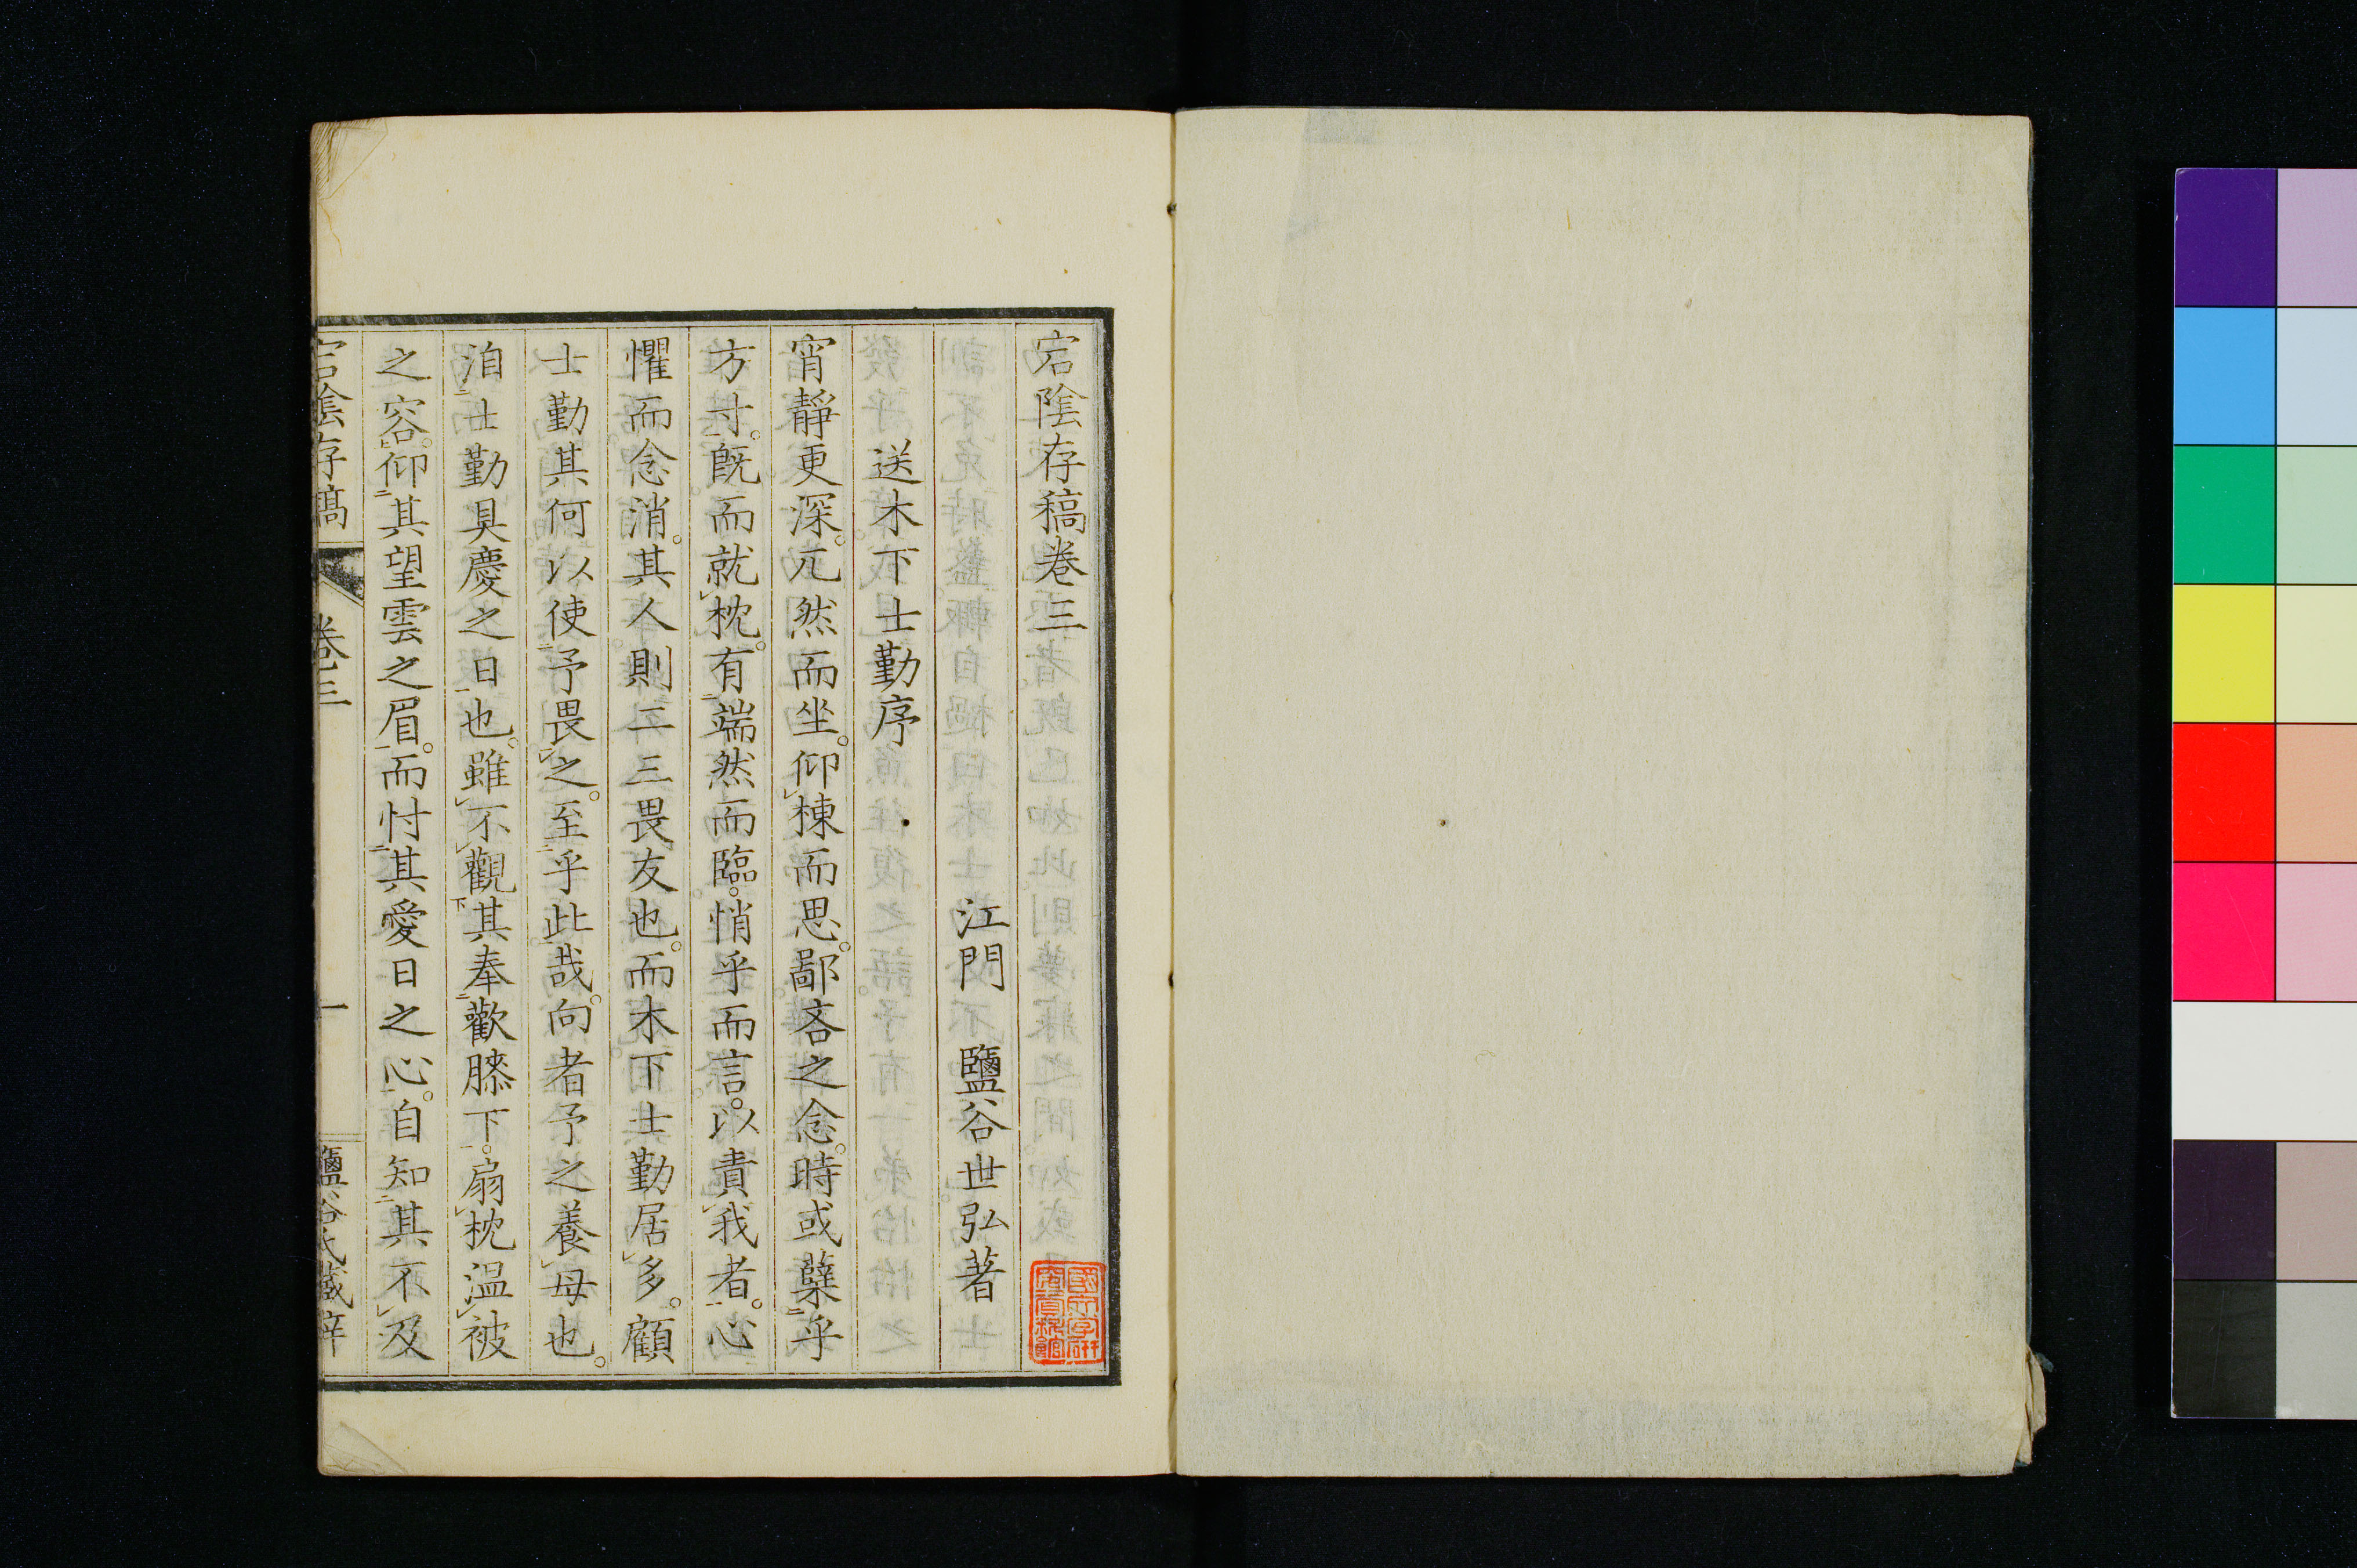 宕陰存稿卷三
江門　鹽谷世弘著
送木下士勤序
宵靜更深。兀然而坐。仰棟而思。鄙吝之念。時或蘖乎
方寸。既而就枕。有端然而臨。悄乎而言。以責我者。心
懼而念消。其人則二三畏友也。而木下士勤居多。顧
士勤其何以使予畏之。至乎此哉。向者予之養母也。
洎士勤具慶之日也。雖不觀其奉歡膝下。扇枕温被
之容。仰其望雲之眉。而忖其愛日之心。自知其不及
宕陰存稿　卷三　一　鹽谷氏藏梓
國文學研究資料館